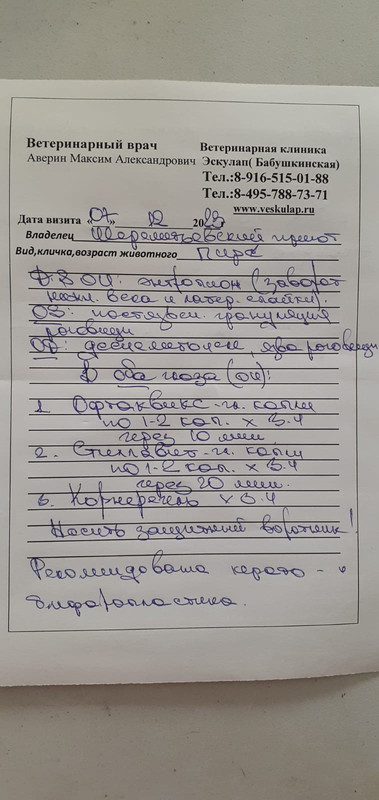 Ветеринарный врач
Аверин Максим Александрович
Ветеринарная клиника
Эскулап( Бабушкинская)
Тел.:8-916-515-01-88
Тел.:8-495-788-73-71
www.veskulap.ru
Дата визита «07» 12 2023
Владелец Шереметьевский приют
Вид,кличка,возраст животного Пират
D.S OU: энтропион (заворот
нижн. века и латер. спайки).
OS: постязвен. грануляция
роговицы
OD: десцеметоцеле, язва роговицы
В оба глаза (OU):
1. Офтаквикс - гл. капли
по 1-2 кап. х 3-4
через 10 мин.
2. Стиллавит - гл. капли
по 1-2 кап. х 3-4
через 20 мин.
3. Корнерегель х 3-4
Носить защитный воротник!
Рекомендована керато- и
блефаропластика.